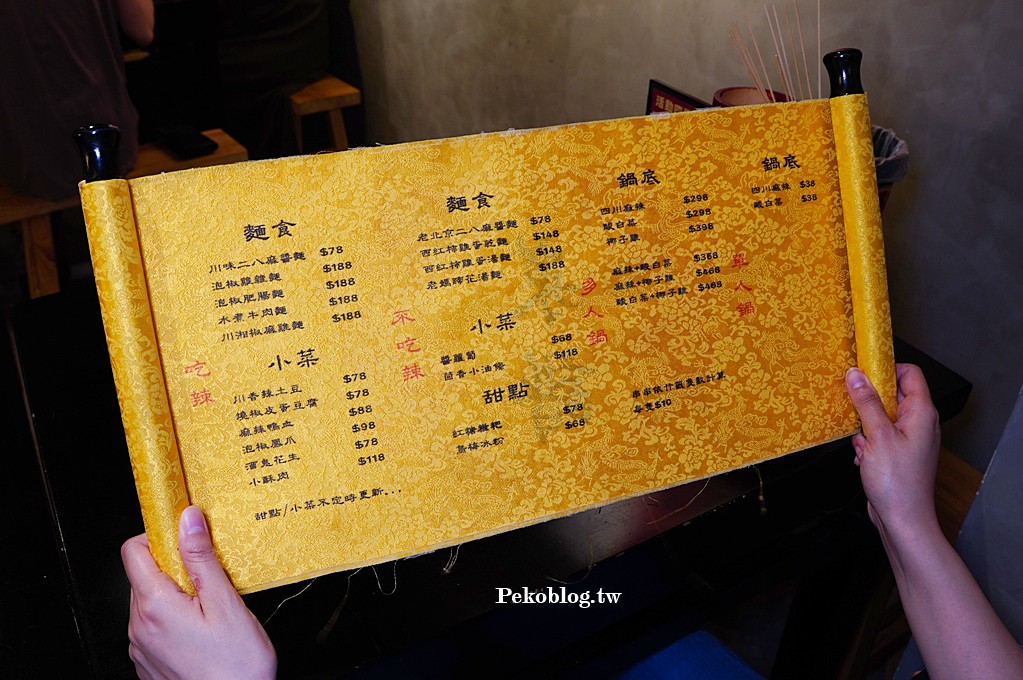 吃辣
麵食
川味二八麻醬麵 $78
泡椒雞雜麵 $188
泡椒肥腸麵 $188
水煮牛肉麵 $188
川湘椒麻雞麵 $188
小菜
川香辣土豆 $78
燒椒皮蛋豆腐 $78
麻辣鴨血 $88
泡椒鳳爪 $98
酒鬼花生 $78
小酥肉 $118
甜點/小菜不定時更新...
不吃辣
麵食
老北京二八麻醬麵 $78
西紅柿雞蛋乾麵 $148
西紅柿雞蛋湯麵 $148
老媽蹄花湯麵 $188
小菜
醬蘿蔔 $68
茴香小油條 $118
甜點
紅糖糍粑 $78
烏梅冰粉 $68
多人鍋
鍋底
四川麻辣 $298
酸白菜 $298
椰子雞 $398
麻辣+酸白菜 $368
麻辣+椰子雞 $468
酸白菜+椰子雞 $468
串串依竹籤隻數計算
每隻$10
單人鍋
鍋底
四川麻辣 $38
酸白菜 $38
Pekoblog.tw